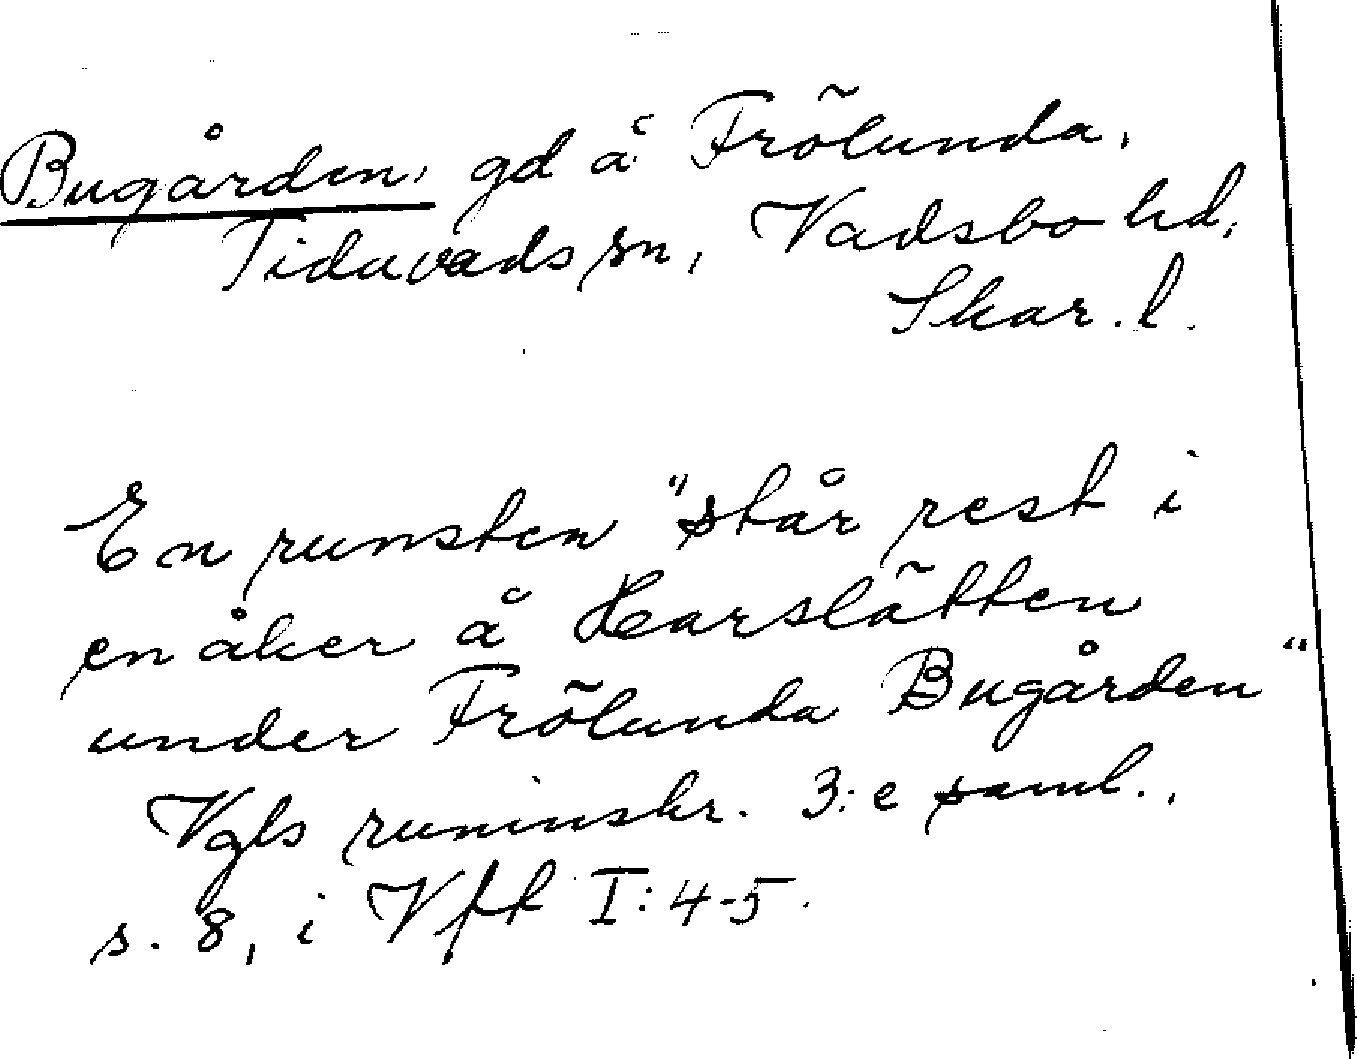 Bugården, gd å Frölunda,
Tiduvads sn, Vadsbo hd,
Skar. l.
En runsten "står rest i
en åker å Karslätten
under Frölunda Bugården"
Vgls runinskr. 3:e saml.,
s. 8, i Vft I:4-5.